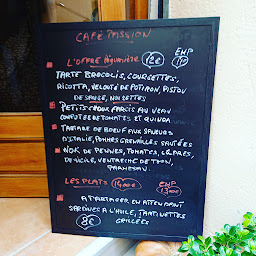 CAFÉ PASSION
L'OFFRE légumière 12€ EMP 11€
TARTE BROCOLIS, COURGETTES,
RICOTTA, VELOUTÉ DE POTIRON, PISTOU
DE SAUGE, NOISETTES
PETITS CHOUX FARCIS AU VEAU
COMPOTÉE DE TOMATES ET QUINOA
TARTARE DE BOEUF AUX SAVEURS
D'ITALIE, POMMES GRENAILLES SAUTÉES
WOK DE PENNES, TOMATES, CÂPRES,
DE SICILE, VENTRECHE DE THON,
PARMESAN.
LES PLATS 14,00€ EMP 13,00€
A PARTAGER EN ATTENDANT
SARDINES A L'HUILE, TARTINETTES
8€ GRILLÉES